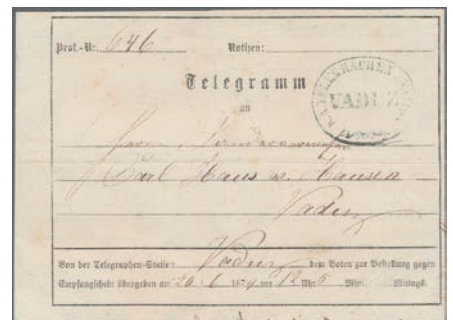 Prot.-Nr. 646 Notizen:
Telegramm
an
K.K. TELEGRAPHEN
VADUZ
Herrn Landesverweser
Carl Haus v. Hausen
Vaduz
Von der Telegraphen-Station Vaduz dem Boten zur Bestellung gegen
Empfangschein übergeben am 20 187 um 12 Uhr 5 Min. Mittags.